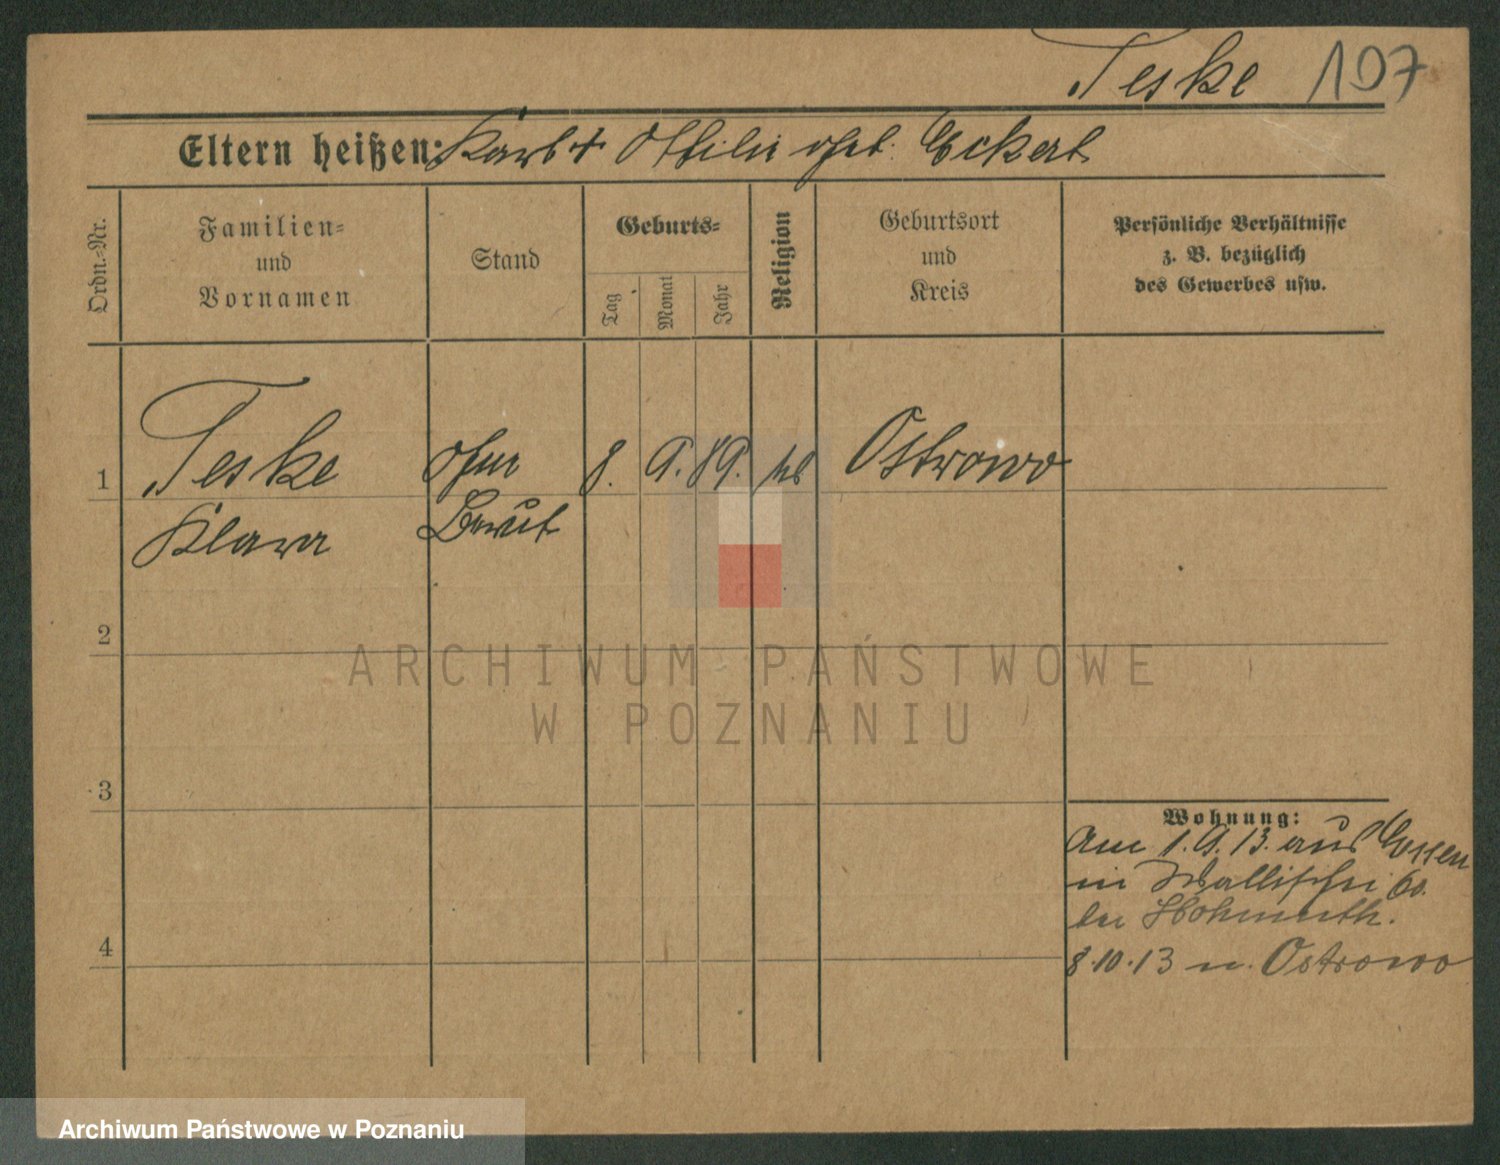 Teske 107
Eltern heißen: Karl + Ottilie geb. Eckert
Ordn.-Nr.
Familien-
und
Vornamen
Stand
Geburts-
Tag
Monat
Jahr
Religion
Geburtsort
und
Kreis
Persönliche Verhältnisse
z. B. bezüglich
des Gewerbes usw.
1
Teske
Klara
ohne
Beruf
8. 9. 89.
Ostrowo
2
3
4
Wohnung:
Am 1. 9. 13. aus Essen
in Wallischei
bei Hohmuth.
8.10.13 n. Ostrowo
ARCHIWUM PAŃSTWOWE
W POZNANIU
Archiwum Państwowe w Poznaniu